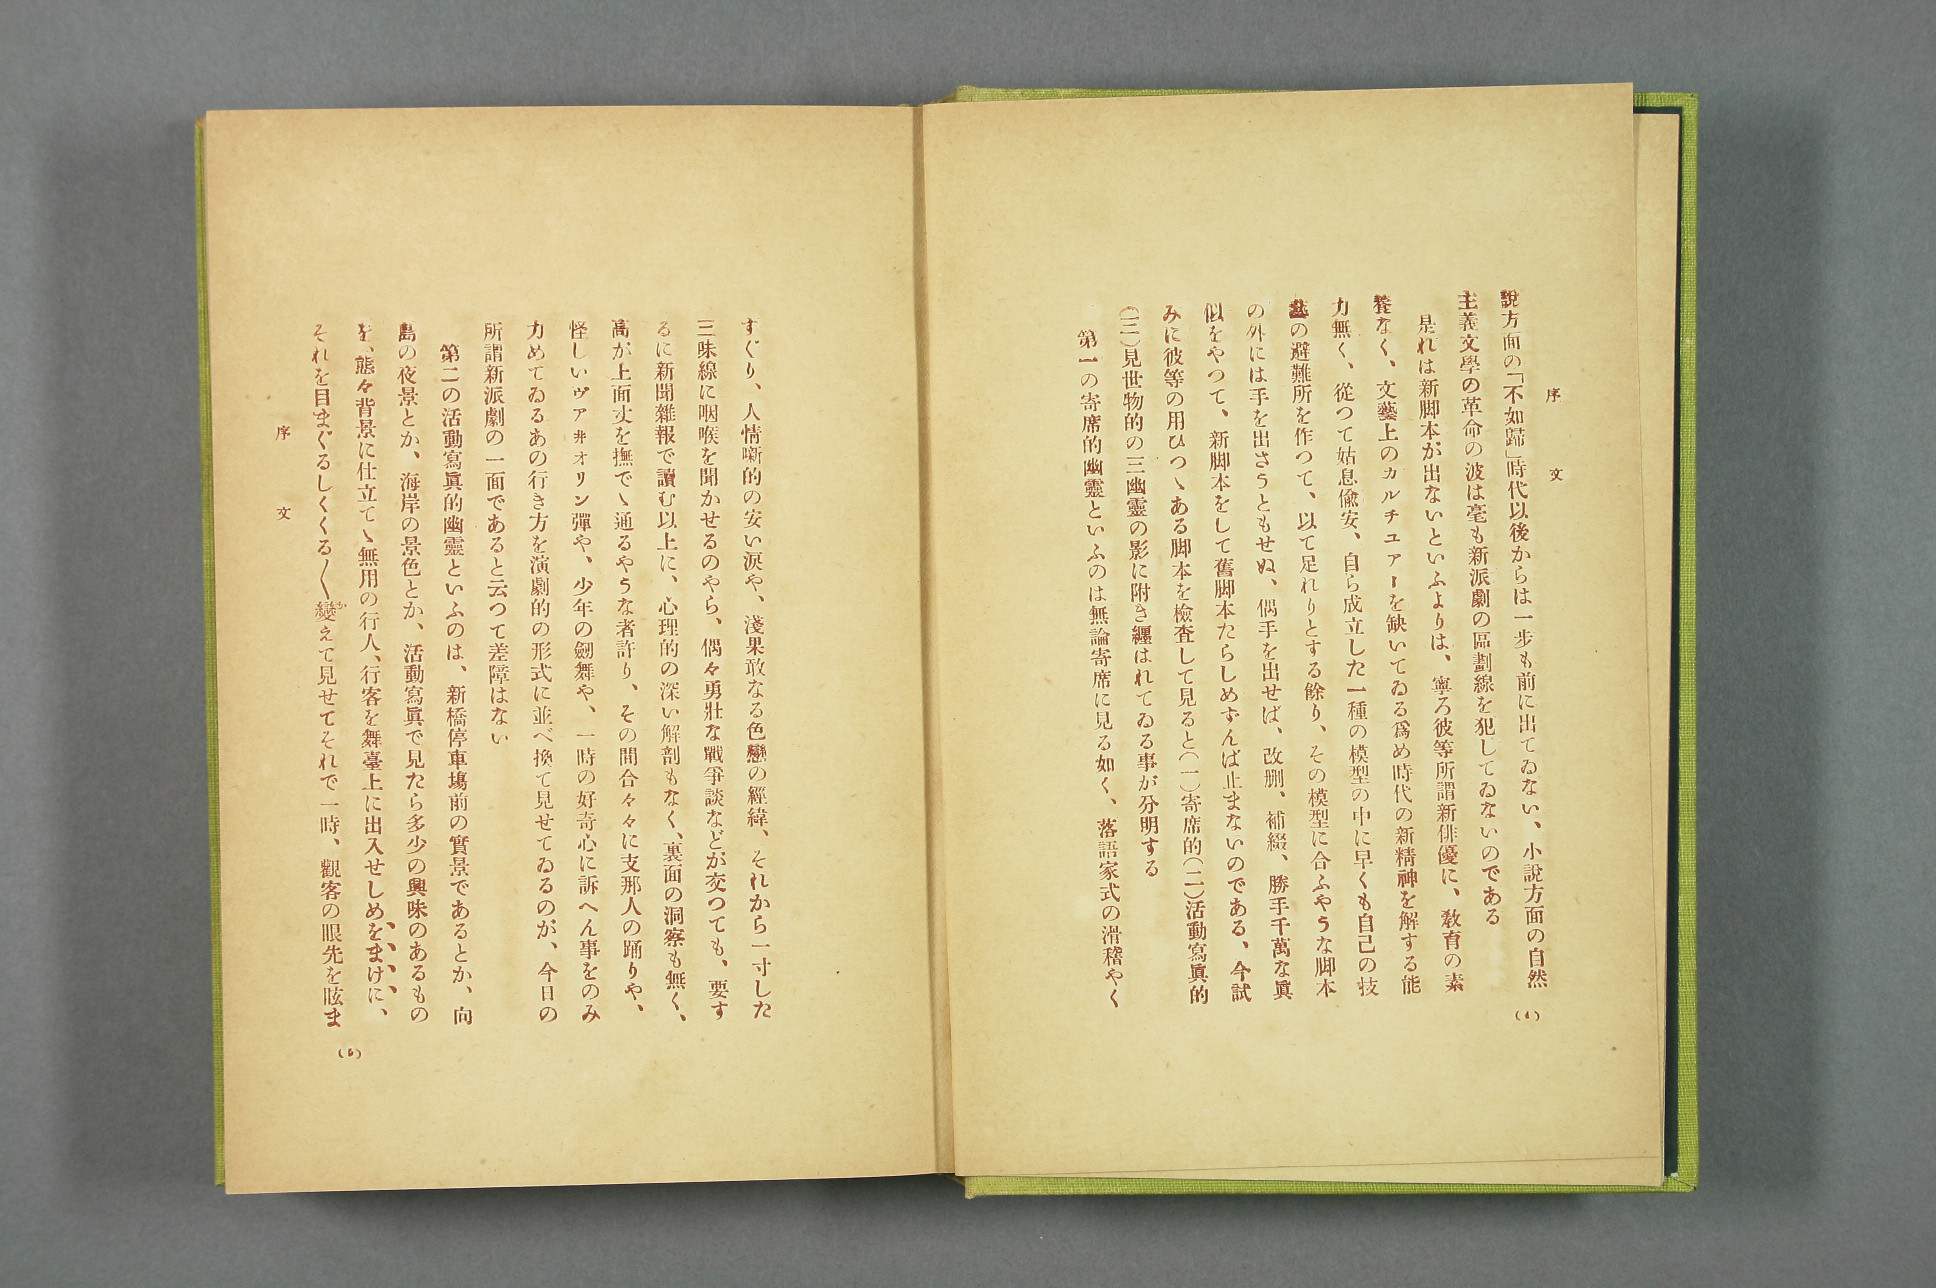 序文
說方面の「不如歸」時代以後からは一步も前に出てゐない、小說方面の自然
主義文學の革命の波は毫も新派劇の區劃線を犯してゐないのである
是れは新脚本が出ないといふよりは、寧ろ彼等所謂新俳優に、敎育の素
養なく、文藝上のカルチユアーを缺いてゐる爲め時代の新精神を解する能
力無く、從つて姑息偸安、自ら成立した一種の模型の中に早くも自己の技
藝の避難所を作つて、以て足れりとする餘り、その模型に合ふやうな脚本
の外には手を出さうともせぬ、偶手を出せば、改删、補綴、勝手千萬な眞
似をやつて、新脚本をして舊脚本たらしめずんば止まないのである、今試
みに彼等の用ひつゝある脚本を檢査して見ると(一)寄席的(二)活動寫眞的
(三)見世物的の三幽靈の影に附き纒はれてゐる事が分明する
第一の寄席的幽靈といふのは無論寄席に見る如く、落語家式の滑稽やく
(4)
すぐり、人情噺的の安い淚や、淺果敢なる色戀の經緯、それから一寸した
三味線に咽喉を聞かせるのやら、偶々勇壯な戰爭談などが交つても、要す
るに新聞雜報で讀む以上に、心理的の深い解剖もなく、裏面の洞察も無く、
高が上面丈を撫でゝ通るやうな者許り、その間合々々に支那人の踊りや、
怪しいヴアヰオリン彈や、少年の劒舞や、一時の好奇心に訴へん事をのみ
力めてゐるあの行き方を演劇的の形式に並べ換て見せてゐるのが、今日の
所謂新派劇の一面であると云つて差障はない
第二の活動寫眞的幽靈といふのは、新橋停車塲前の實景であるとか、向
島の夜景とか、海岸の景色とか、活動寫眞で見たら多少の興味のあるもの
を、態々背景に仕立てゝ無用の行人、行客を舞臺上に出入せしめ、をまけに、
それを目まぐるしくくる〱變えて見せてそれで一時、觀客の眼先を眩ま
序文
(5)